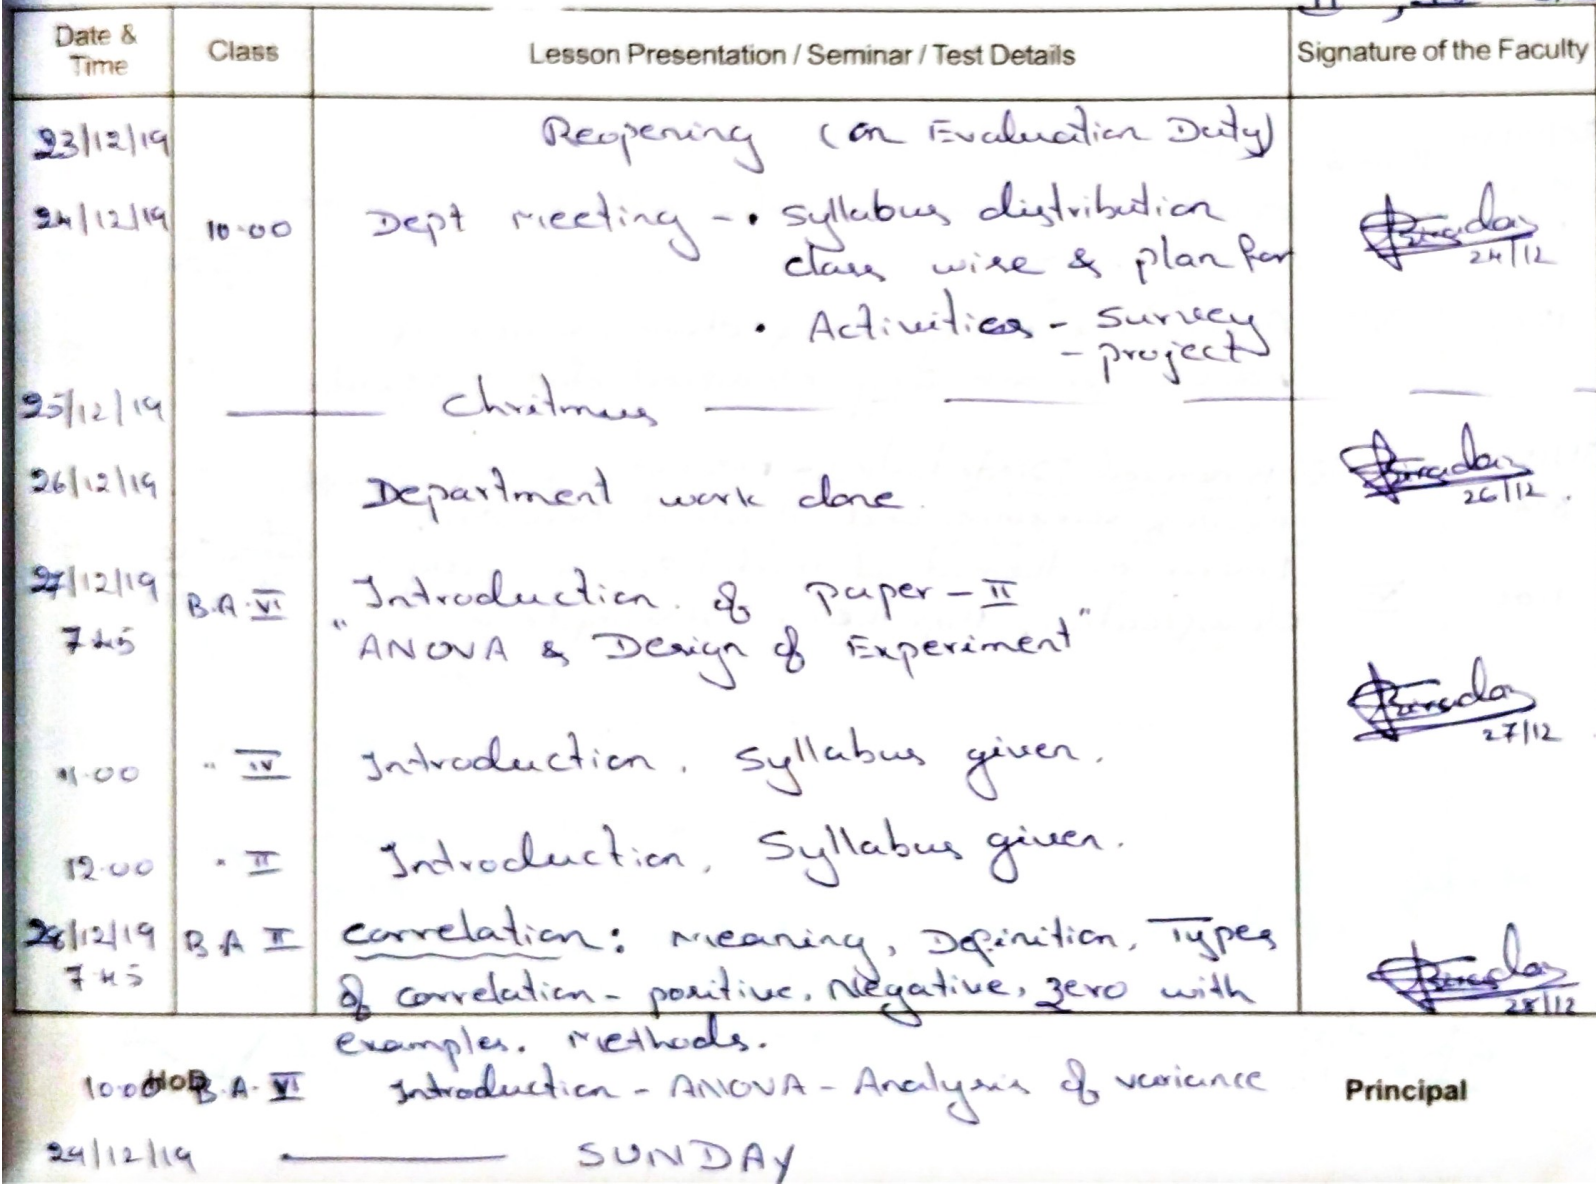 Date & Time Class Lesson Presentation / Seminar / Test Details Signature of the Faculty
23/12/19 Reopening (on Evaluation Duty)
24/12/19 10.00 Dept meeting - • Syllabus distribution
class wise & plan for
• Activities - Survey
- project
24/12
25/12/19 Chritmas
26/12/19 Department work done.
26/12.
27/12/19 B.A. VI Introduction of paper - II
7 45 "ANOVA & Design of Experiment"
27/12
11.00 " IV Introduction, Syllabus given.
12.00 " II Introduction, Syllabus given.
28/12/19 B A II Correlation: Meaning, Definition, Types
7 45 of correlation - positive, Negative, zero with
28/12
examples. Methods.
10.00 HoD B.A. VI Introduction - ANOVA - Analysis of variance Principal
29/12/19 SUNDAY